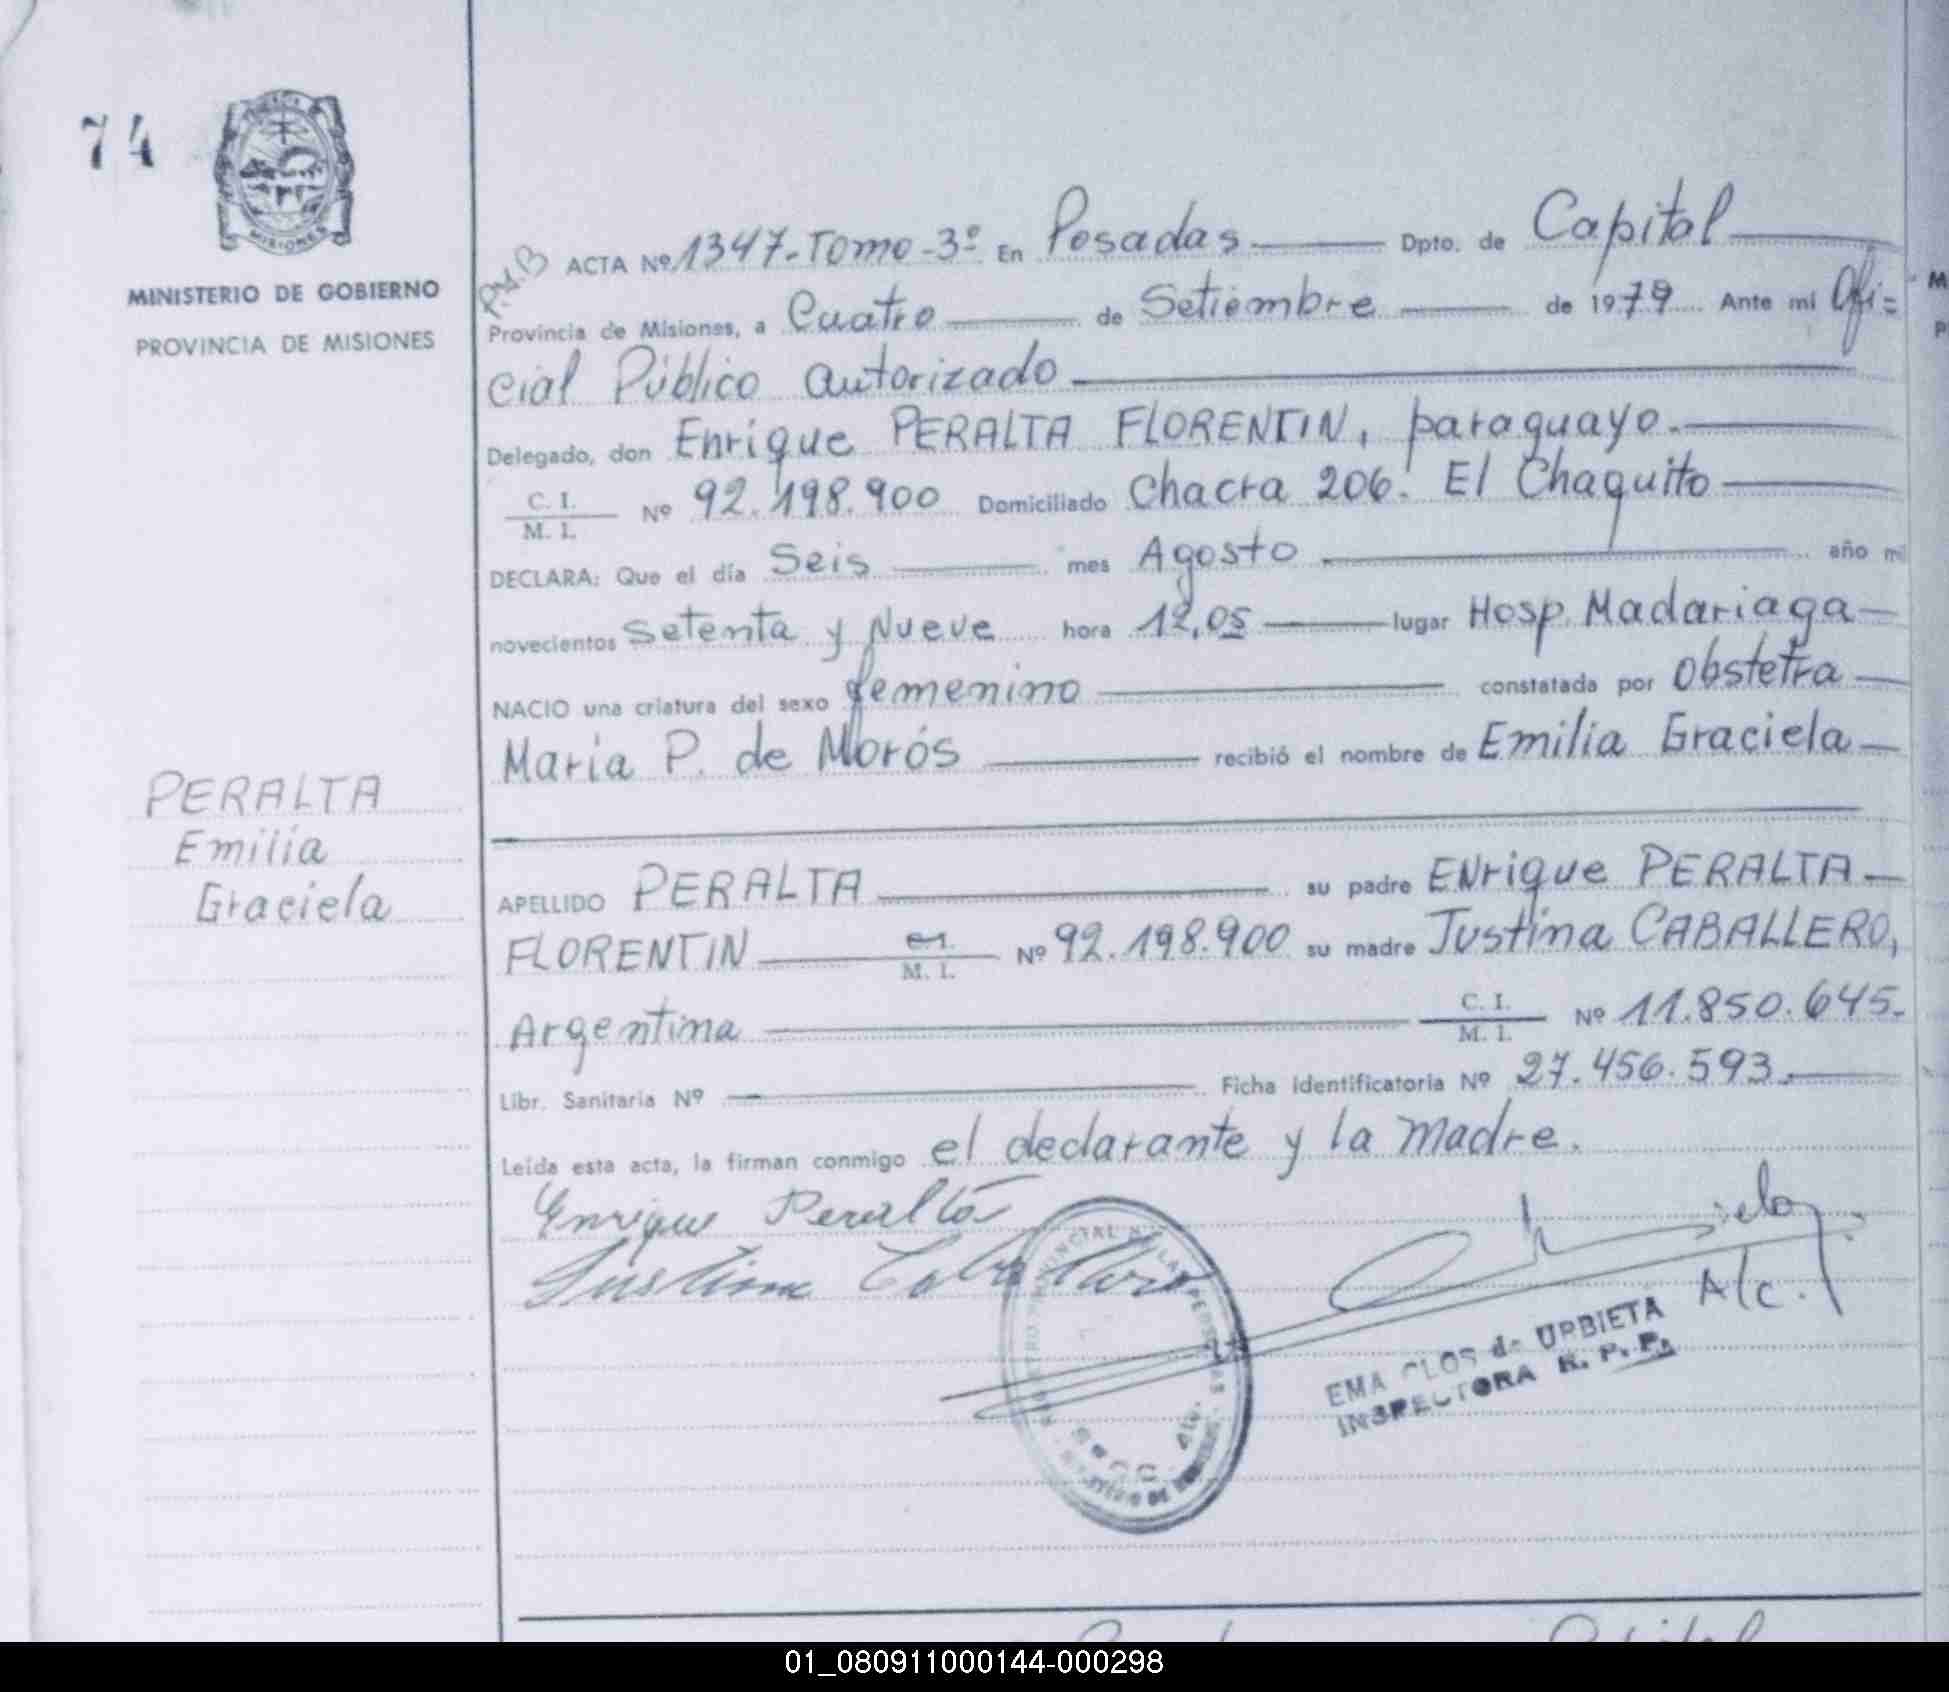 74
MISIONES
MINISTERIO DE GOBIERNO
PROVINCIA DE MISIONES
PERALTA
Emilia
Graciela
ACTA Nº 1347-Tomo-3º En Posadas Dpto. de Capital
Provincia de Misiones, a Cuatro de Setiembre de 1979 Ante mi Ofi=
cial Público autorizado
Delegado, don Enrique PERALTA FLORENTIN, paraguayo.
C. I. / M. I. Nº 92.198.900 Domiciliado Chacra 206. El Chaquito
DECLARA: Que el día Seis mes Agosto año mil
novecientos Setenta y Nueve hora 12,05 lugar Hosp. Madariaga
NACIO una criatura del sexo femenino constatada por Obstetra
María P. de Morós recibió el nombre de Emilia Graciela
APELLIDO PERALTA su padre Enrique PERALTA
FLORENTIN C. I. / M. I. Nº 92.198.900 su madre Justina CABALLERO,
Argentina C. I. / M. I. Nº 11.850.645.
Libr. Sanitaria Nº Ficha identificatoria Nº 27.456.593.
Leída esta acta, la firman conmigo el declarante y la madre.
Enrique Peralta
Justina Caballero
A/c.
EMA CLOS de URBIETA
INSPECTORA R. P. P.
01_080911000144-000298